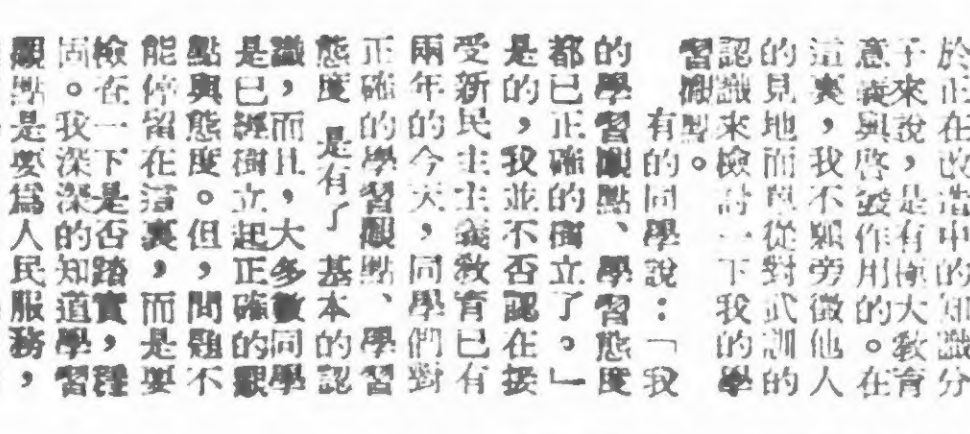 於正在改造中的知識分
子來說，是有極大教育
意義與啓發作用的。在
這裏，我不願旁徵他人
的見地而單從對武訓的
認識來檢討一下我的學
習觀點。
有的同學說：「我
的學習觀點、學習態度
都已正確的樹立了。」
是的，我並不否認在接
受新民主主義敎育已有
兩年的今天，同學們對
正確的學習觀點、學習
態度是有了基本的認
識，而且，大多數同學
是已經樹立起正確的觀
點與態度。但，問題不
能停留在這裏，而是要
檢查一下是否踏實，穩
固。我深深的知道學習
觀點是要爲人民服務，